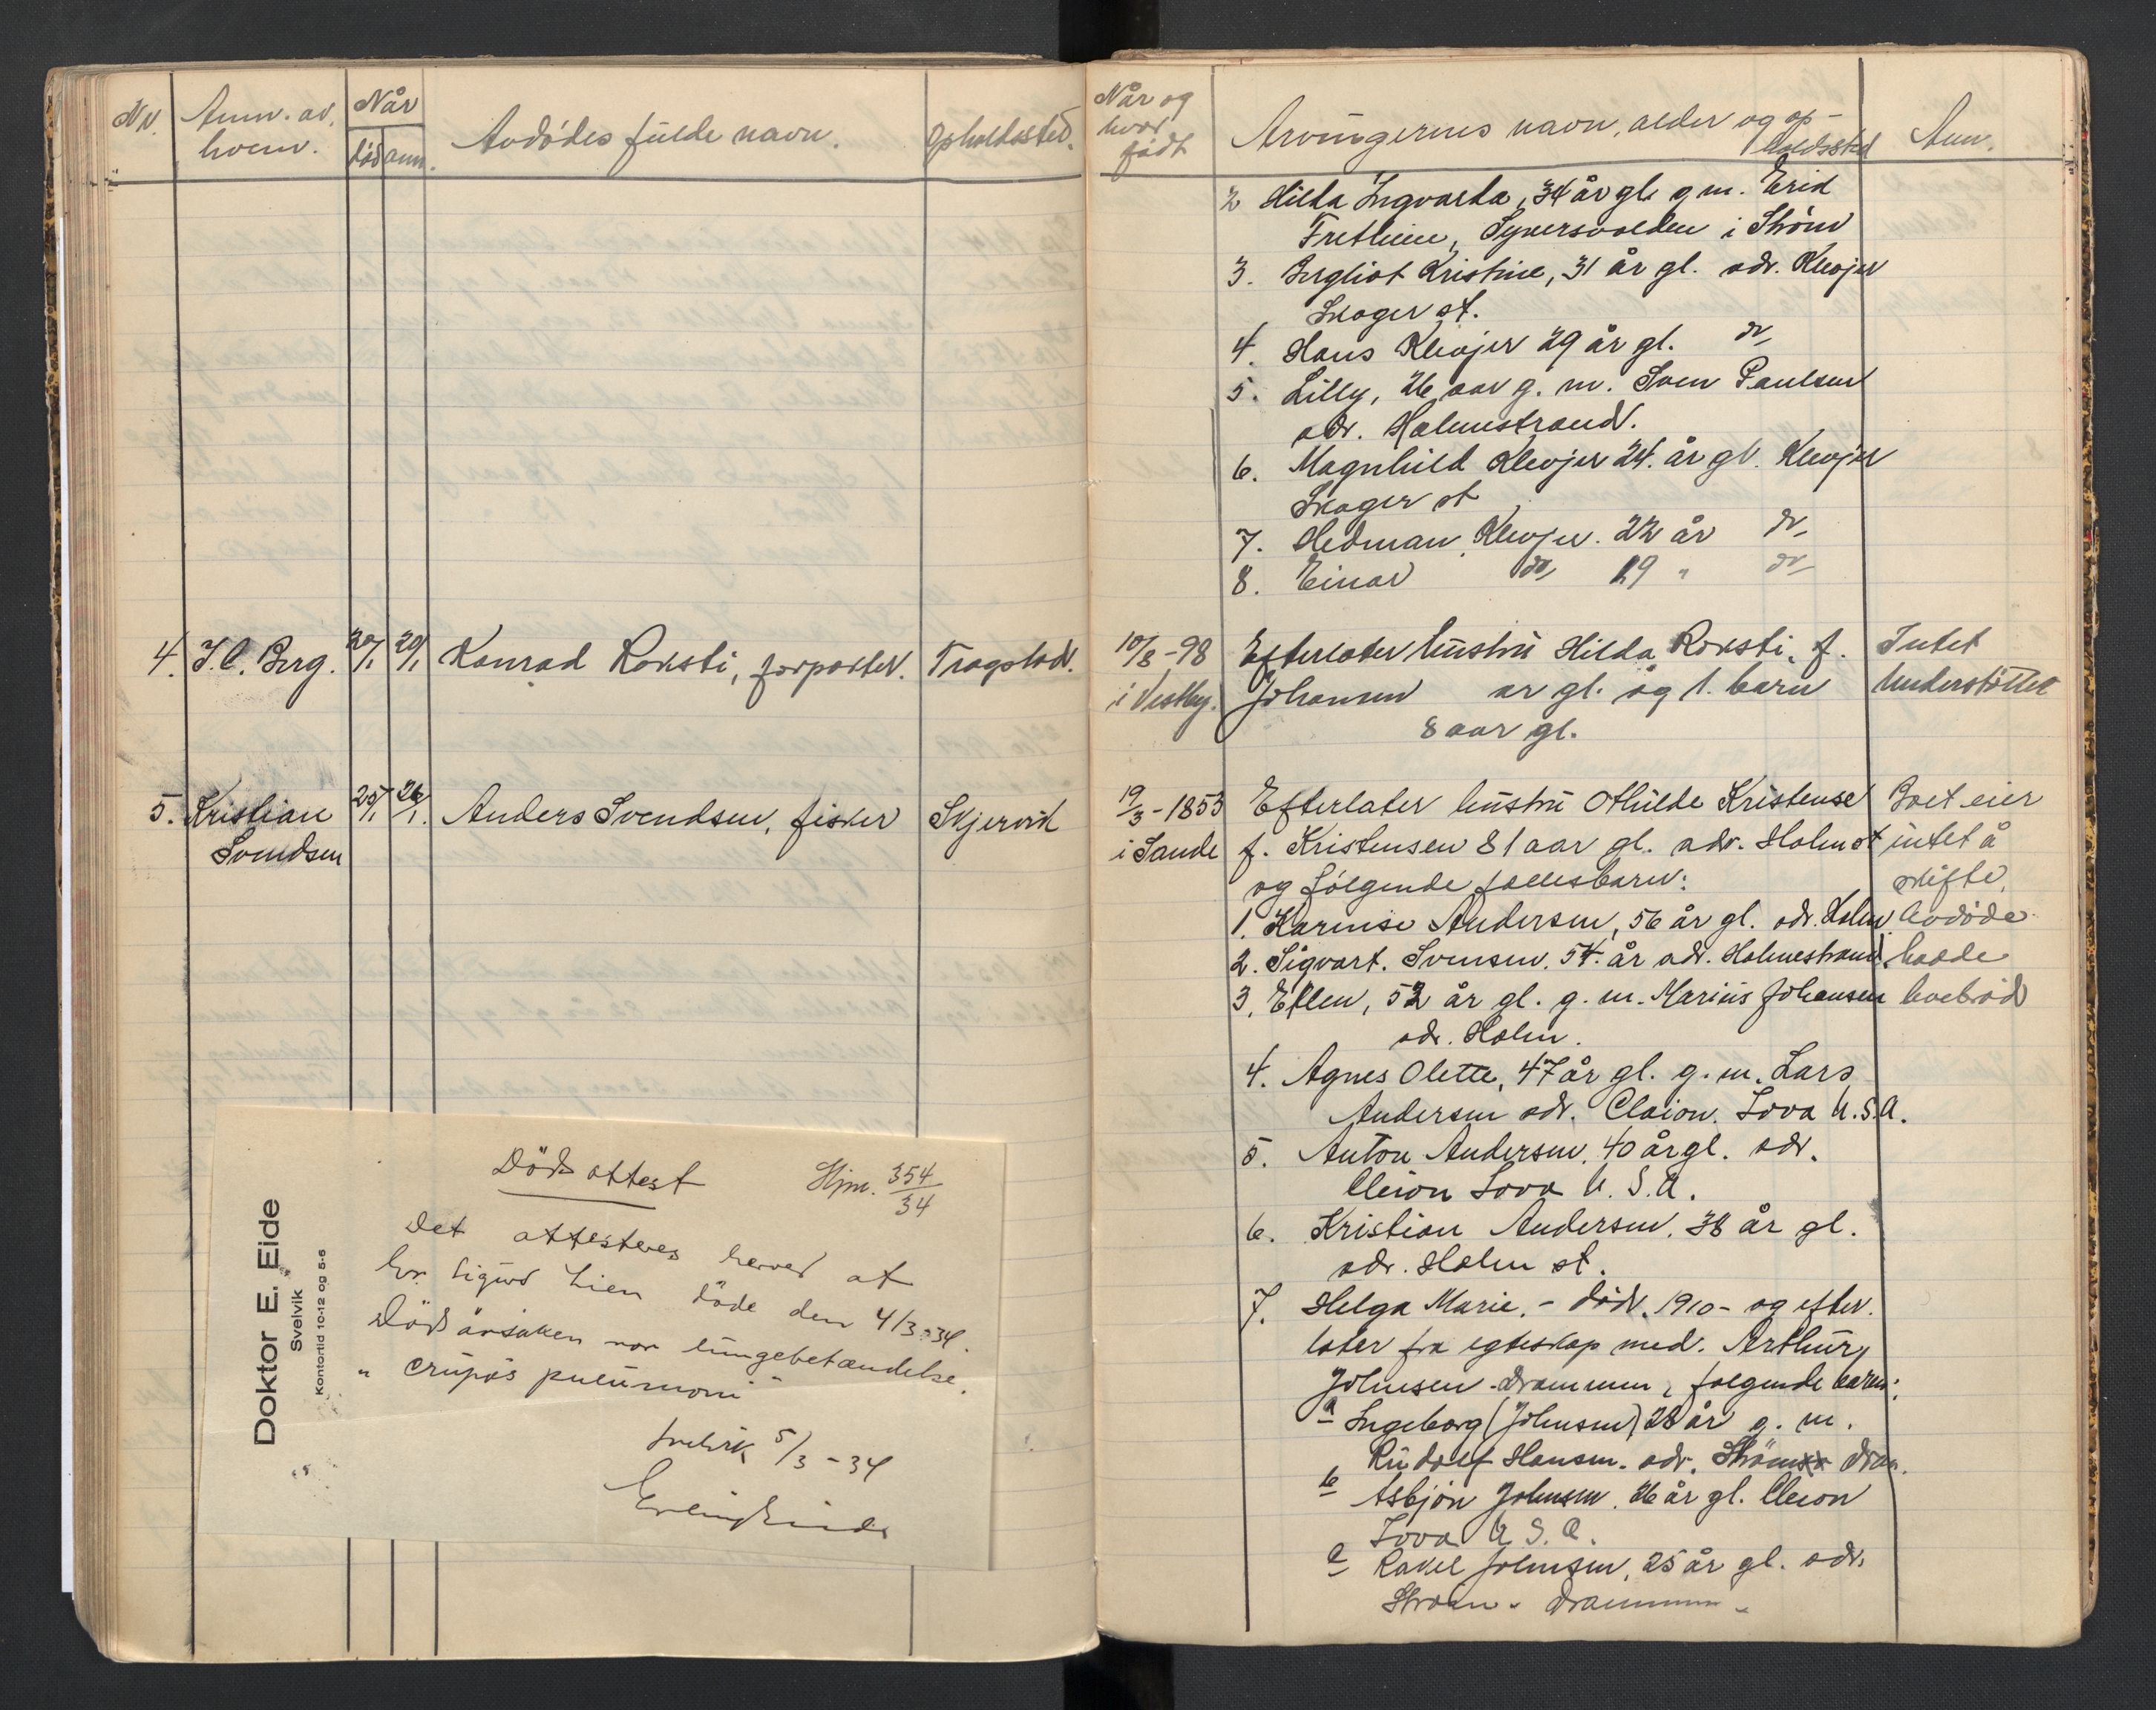 Nr. Anm. av hvem. Når død anm. Avdødes fulde navn. Opholdssted.
4. J. C. Berg. 20/1 29/1 Konrad Roksti, forpakter. Tragstad.
5. Kristian 25/1 26/1. Anders Svendsen, fisker Skjervik
Svendsen
Dødsattest Hjm. 354/34
Det attesteres herved at
hr. Sigurd Lien døde den 4/3-34.
Dödsårsaken var lungebetændelse.
" crupøs pneumoni "
Svelvik 5/3-34
Erling Eide
Doktor E. Eide
Svelvik
Kontortid 10-12 og 5-6
Når og hvor født Arvingernes navn, alder og opholdssted Anm.
2 Hilda Ingvarda, 34 år gl. g m. Erik
Fretheim, i Strøm
3. Bergliot Kristine, 31 år gl. adr. Klevjer
Skoger st.
4. Hans Klevjer 29 år gl. do
5. Lilly, 26 aar g. m. Sven Paulsen
adr. Holmestrand.
6. Magnhild Klevjer 24. år gl. Klevjer
Skoger st
7. Hedman Klevjer. 22 år do
8. Einar do 19 " do
10/8-98 Efterlater hustru Hilda Roksti, f. Intet
i Vestby. Johansen ar gl. og 1. barn Understøttet
8 aar gl.
19/3-1853 Efterlater hustru Othilde Kristense Boet eier
i Sande f. Kristensen 81 aar gl. adr. Holm st intet å
og følgende fællesbarn: skifte.
1. Karense Andersen, 56 år gl. adr. Holm. Avdøde
2. Sigvart. Svensen. 54. år adr. Holmestrand. hadde
3. Ellen, 52 år gl. g. m. Marius Johansen levebrød
adr. Holm.
4. Agnes Olette, 47 år gl. g. m. Lars
Andersen adr. Claion. Iova U.S.A.
5. Anton Andersen. 40 år gl. adr.
Cleion Iova U.S.A.
6. Kristian Andersen. 38 år gl.
adr. Holm st.
7. Helga Marie, - død. 1910 - og efter.
later fra egteskap med. Arthur
Johnsen - Drammen, følgende barn:
a Ingeborg (Johnsen) 28 år g. m.
Rudolf Hansen. adr. Dram.
b Asbjøn Johnsen. 26 år gl. Cleion
Iova U.S.A.
c Rakel Johnsen, 25 år gl. adr.
Strøm - Drammen -